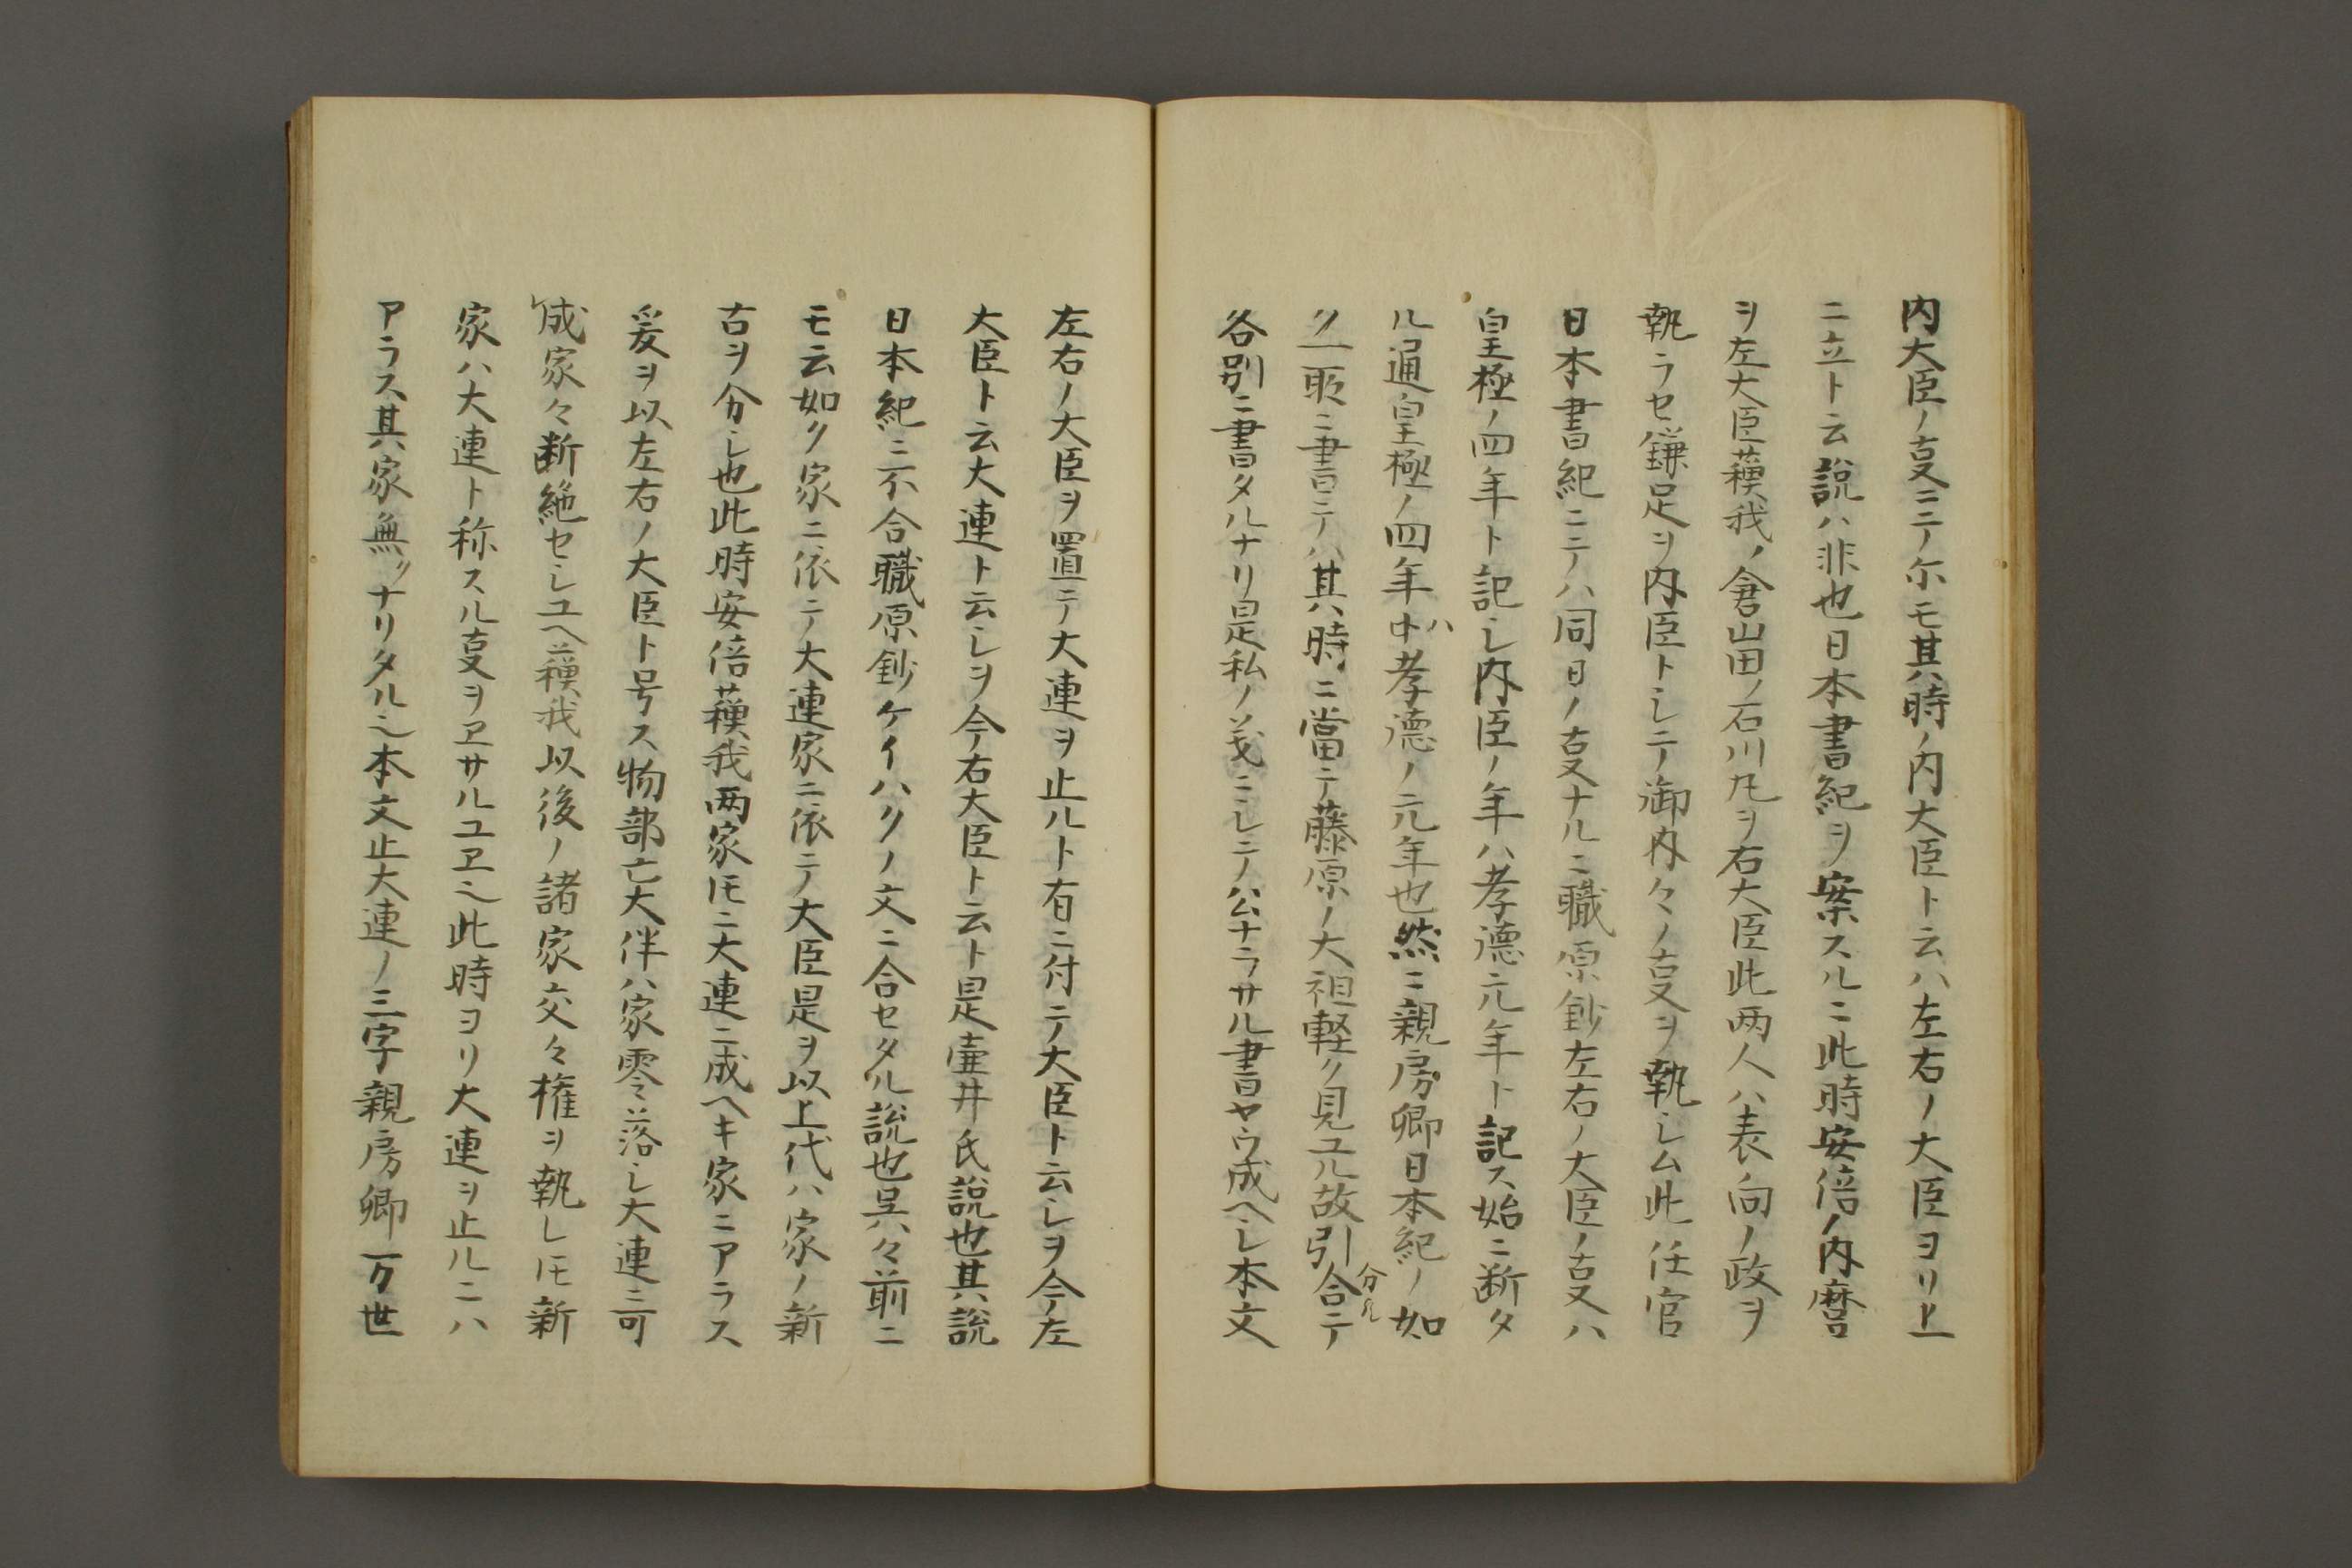 内大臣ノ叓ニテ尓モ其時ノ内大臣ト云ハ左右ノ大臣ヨリ上
ニ立ト云說ハ非也日本書紀ヲ案スルニ此時安倍ノ内麿
ヲ左大臣蘓我ノ倉山田ノ石川凡ヲ右大臣此两人ハ表向ノ政ヲ
執ラセ鎌足ヲ内臣トシテ御内々ノ叓ヲ執シム此任官
日本書紀ニテハ同日ノ叓ナルニ職原鈔左右ノ大臣ノ叓ハ
皇極ノ四年ト記シ内臣ノ年ハ孝德元年ト記ス始ニ断タ
ル通皇極ノ四年ハ孝德ノ元年也然ニ親房卿日本紀ノ如
ク一取ニ書テハ其時ニ當テ藤原ノ大祖軽ク見ユル故引合テ
分ル
各別ニ書タルナリ是私ノ義ニシテ公ナラサル書ヤウ成ヘシ本文
左右ノ大臣ヲ置テ大連ヲ止ルト有ニ付テ大臣ト云シヲ今左
大臣ト云大連ト云シヲ今右大臣ト云ト是壷井氏說也其說
日本紀ニ不合職原鈔ケイハクノ文ニ合セタル說也呉々前ニ
モ云如ク家ニ依テ大連家ニ依テ大臣是ヲ以上代ハ家ノ新
古ヲ分シ也此時安倍蘓我两家𪜈ニ大連ニ成ヘキ家ニアラス
爰ヲ以左右ノ大臣ト号ス物部亡大伴ハ家零落シ大連ニ可
成家々断絶セシユヘ蘓我以後ノ諸家交々権ヲ執レ𪜈新
家ハ大連ト称スル叓ヲヱサルユヱ也此時ヨリ大連ヲ止ルニハ
アラス其家無クナリタル也本文止大連ノ三字親房卿万世